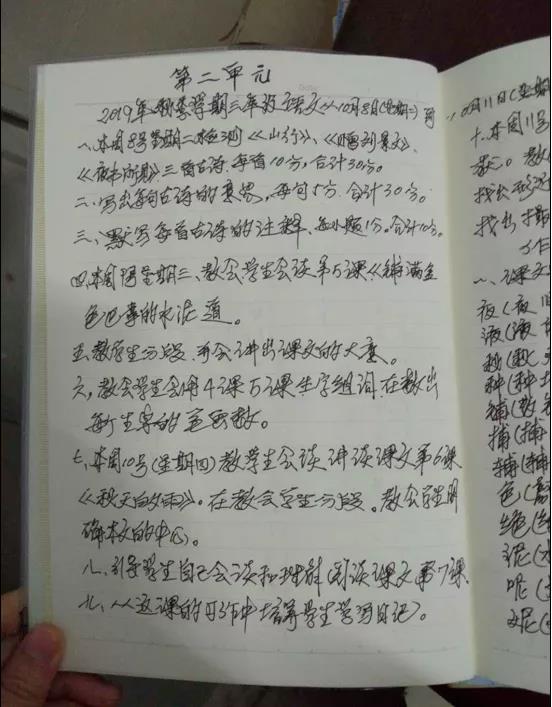 第二单元
2019年秋季学期三年级语文从10月8日(星期二)
一、本周8号星期二检测《山行》、《赠刘景文》、
《夜书所见》三首古诗.每首10分,合计30分。
二、写出每句古诗的意思,每句5分.合计30分。
三、默写每首古诗的注释、每小题1分,合计10分。
四、本周9号星期三、教会学生会读第5课《铺满金
色巴掌的水泥道。
五、教学生分段.并会讲出课文的大意。
六,教会学生会用4课5课生字组词.在数出
每个生字的笔画数。
七、本周10号(星期四)教学生会读讲读课文第6课
《秋天的雨》。在教会学生分段。教会学生明
确本文的中心。
八、引导学生自己会读和理解略读课文第7课
九、从这课的习作中培养学生学写日记。
10月11日(星期
十.本周11号
教
找出
找出
习作
一、课文
夜(夜
液(液
秒(秒
种(种土
铺(
捕(捕
辅(辅
色(
绝(
泥(
呢(